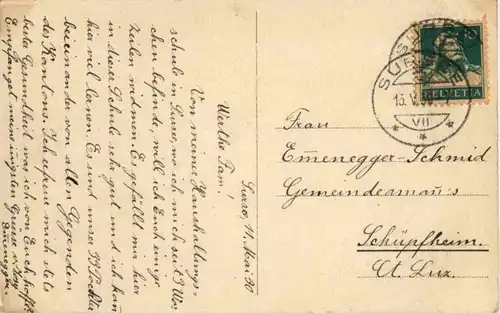 Sursee, 11. Mai 30
Werthe Fam!
Von meiner Haushaltungs-
schule in Sursee, wo ich mich seit 3 Wo-
chen befinde, will ich Euch einige
Zeilen widmen. Es gefällt mir hier
in dieser Schule sehr gut und ich kann
hier viel lernen. Es sind unser 33 Töchter
beieinander von allen Gegenden
des Kantons. Ich erfreue mich stets
bester Gesundheit was ich von Euch hoffe.
Empfanget meine innigsten Grüsse
Emenegger
HELVETIA
SURSEE
13.V.30
VII
Frau
Emenegger-Schmid
Gemeindeaman's
Schüpfheim.
Ct. Luz.